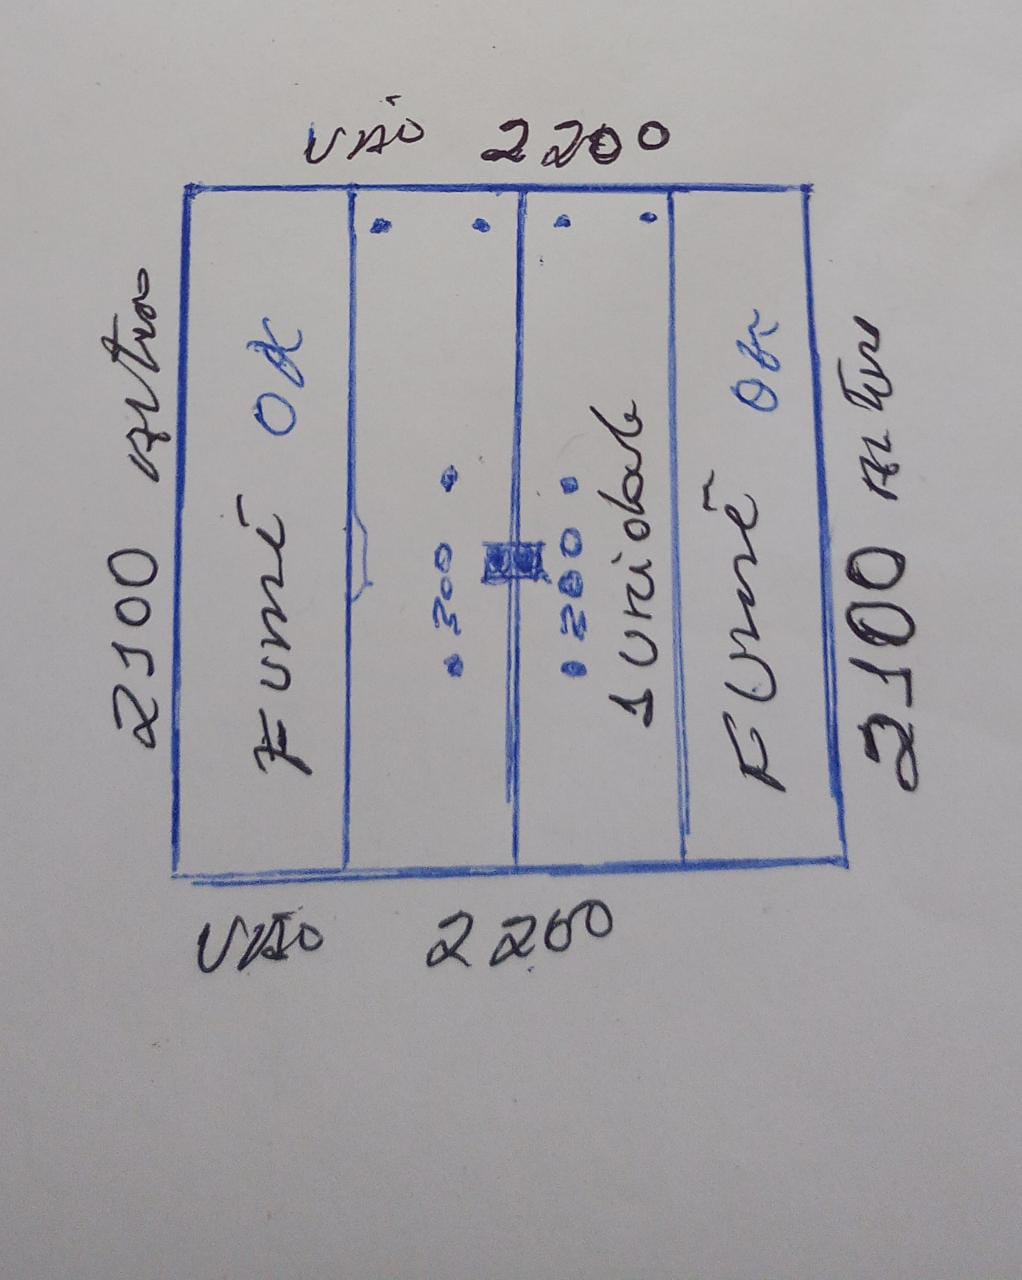 VÃO 2200
2100 altura
FUMÊ OK
300
200
1 unidade
FUMÊ OK
2100 altura
VÃO 2200